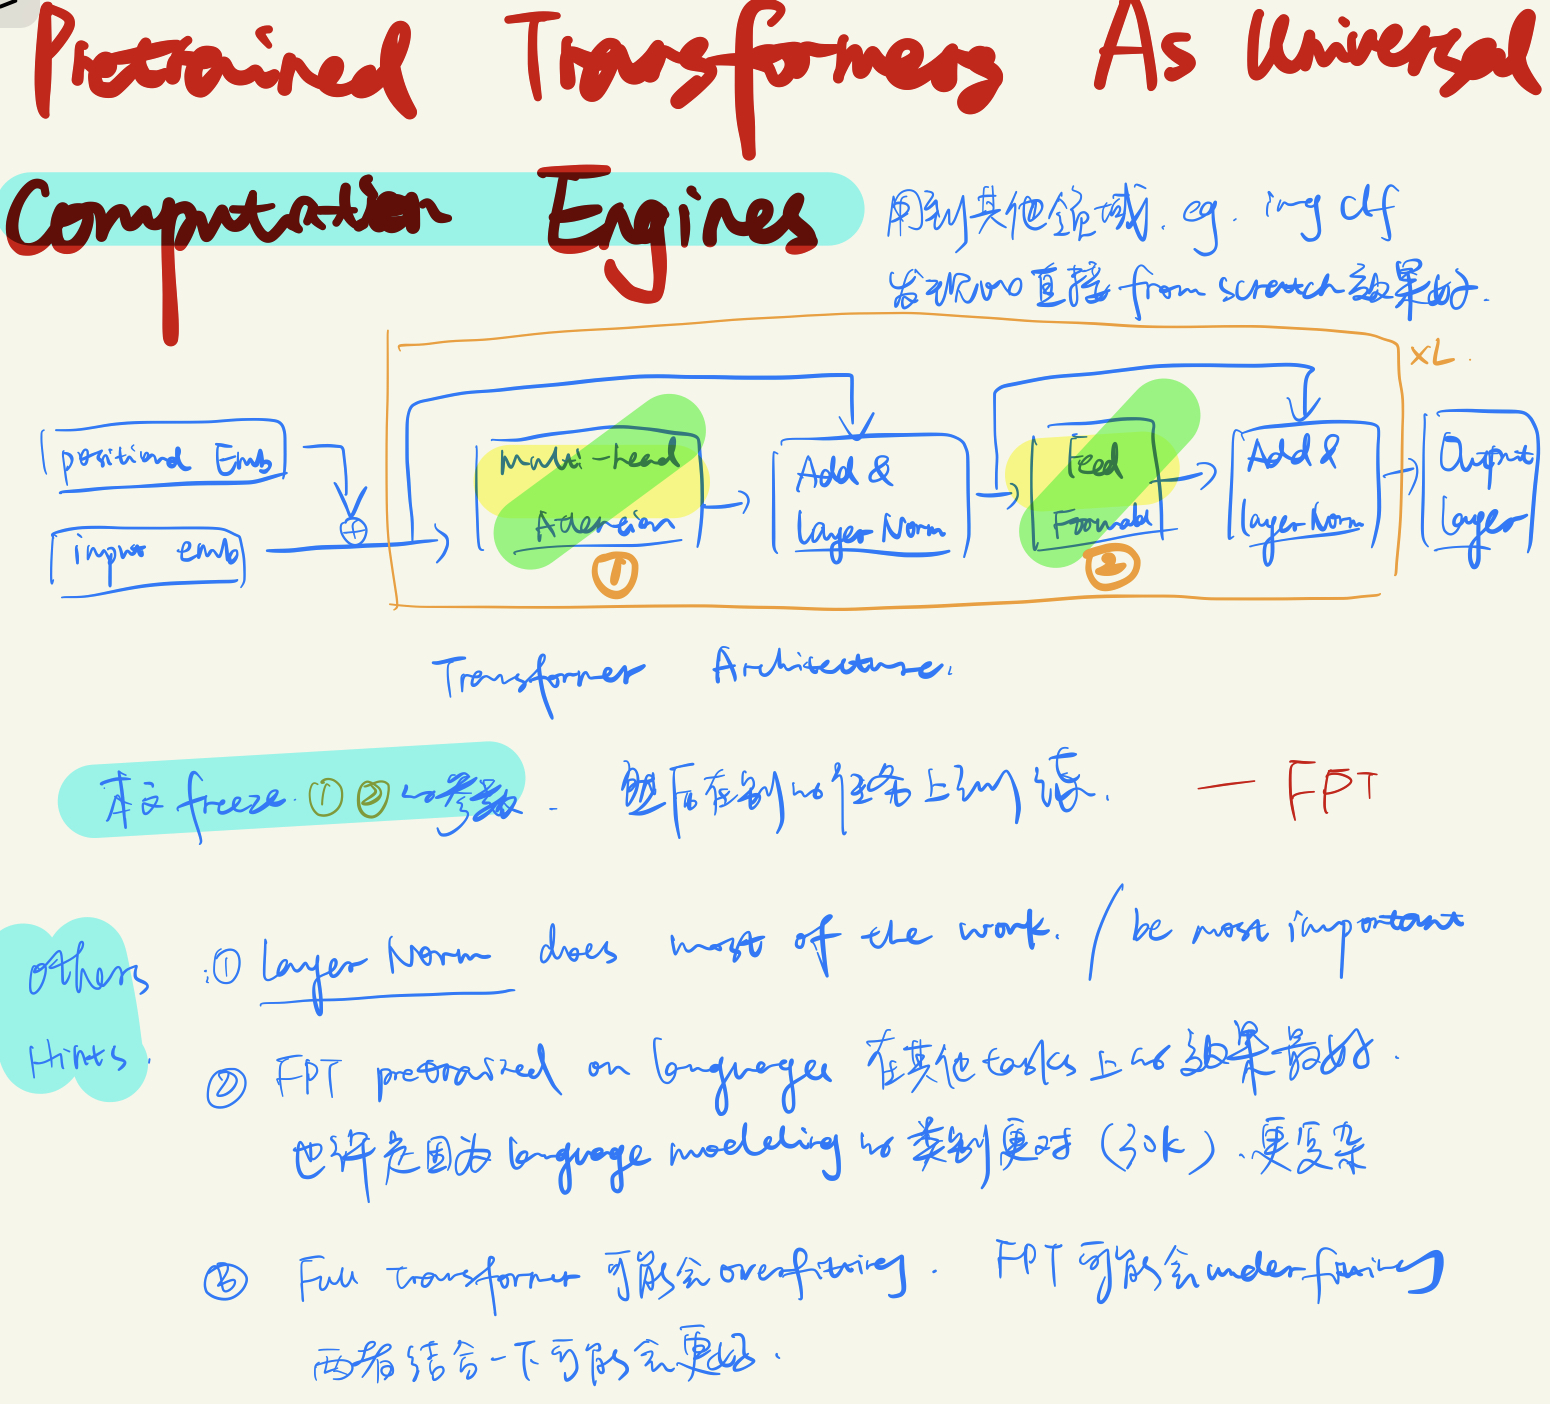 Pretrained Transformers As Universal
Computation Engines
用到其他领域. eg. img clf
发现比直接 from scratch 效果好.
×L
positional Emb
input emb
Multi-head
Attension
①
Add &
Layer Norm
Feed
Forward
②
Add &
Layer Norm
Output
Layer
Transformer Architecture.
本文 freeze ①② 的参数. 然后在别的任务上训练. — FPT
others
Hints.
① Layer Norm does most of the work. / be most important
② FPT pretrained on language 在其他tasks上的效果最好.
也许是因为 language modeling 的类别更多 (30k). 更复杂
③ Full transformer 可能会 overfitting. FPT 可能会 underfitting
两者结合一下可能会更好.